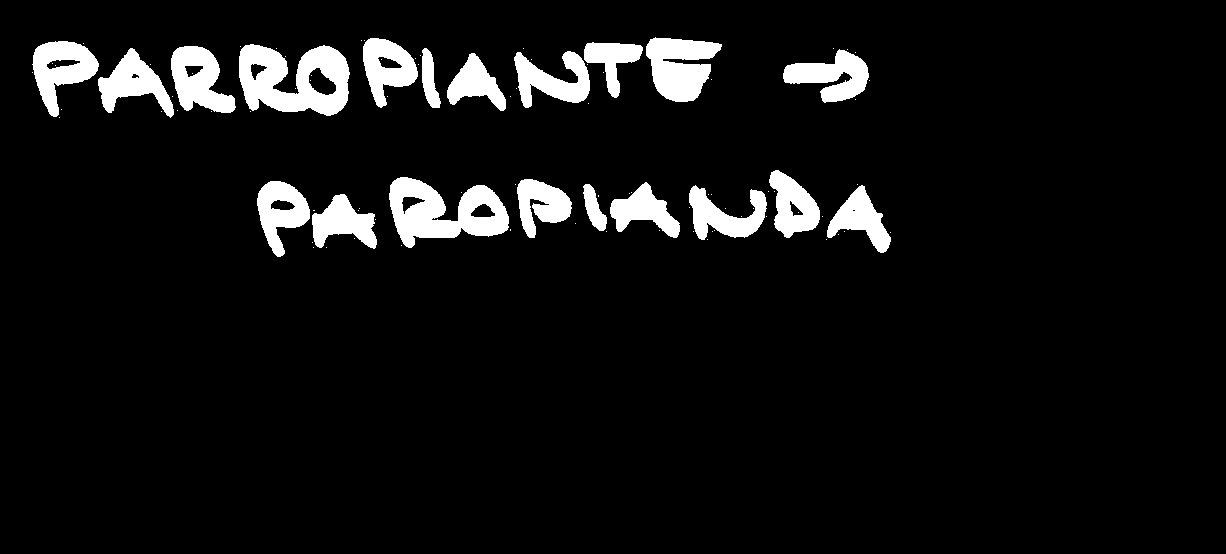 PARROPIANTE →
PAROPIANDA